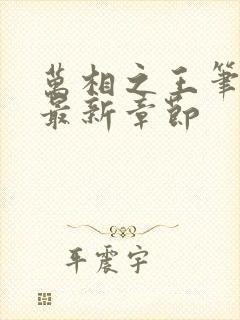 萬相之王筆
最新章節
平震宇